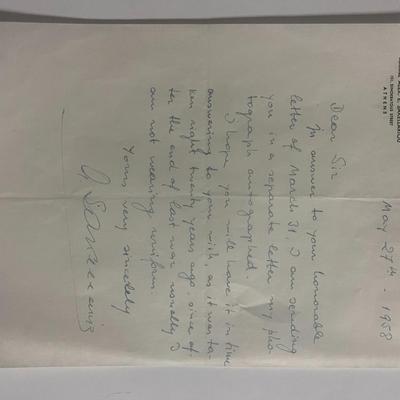 ATHENS
May 27th - 1958
Dear Sir
In answer to your honorable
letter of March 31, I am sending
you in a separate letter my pho-
tograph autographed.
I hope you will have it in time
answering to your wish, as it was ta-
ken twenty years ago since af-
ter the end of last war usually I
am not wearing uniform.
Yours very sincerely